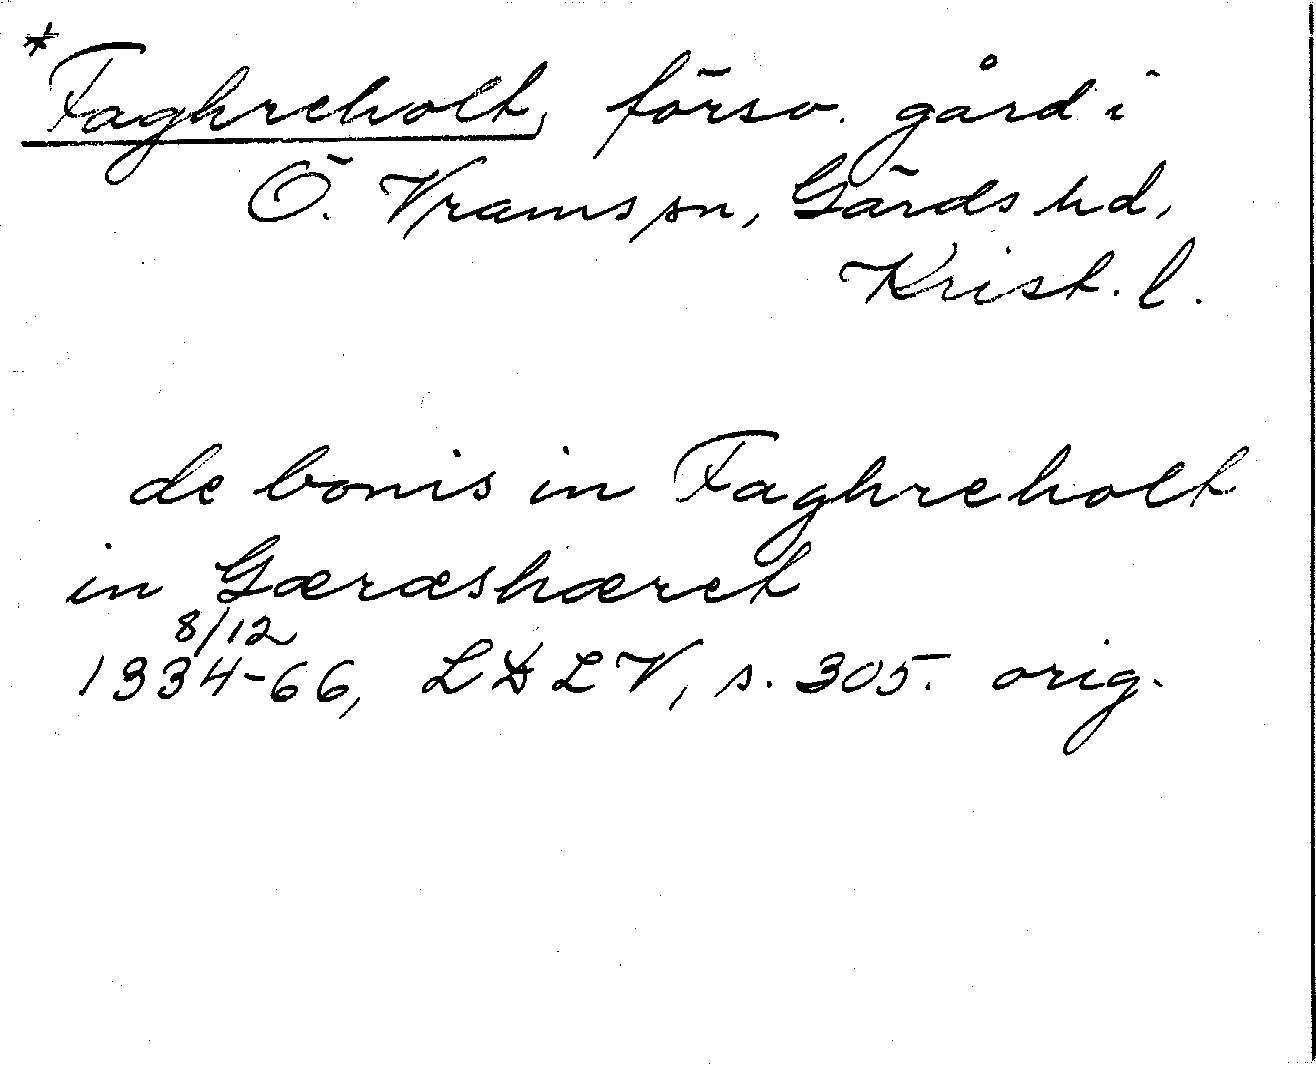 * Faghreholt, försv. gård i
Ö. Vrams sn, Gärds hd,
Krist. l.
de bonis in Faghreholt
in Gæræshæret
8/12
1334-66, LDLV, s. 305. orig.